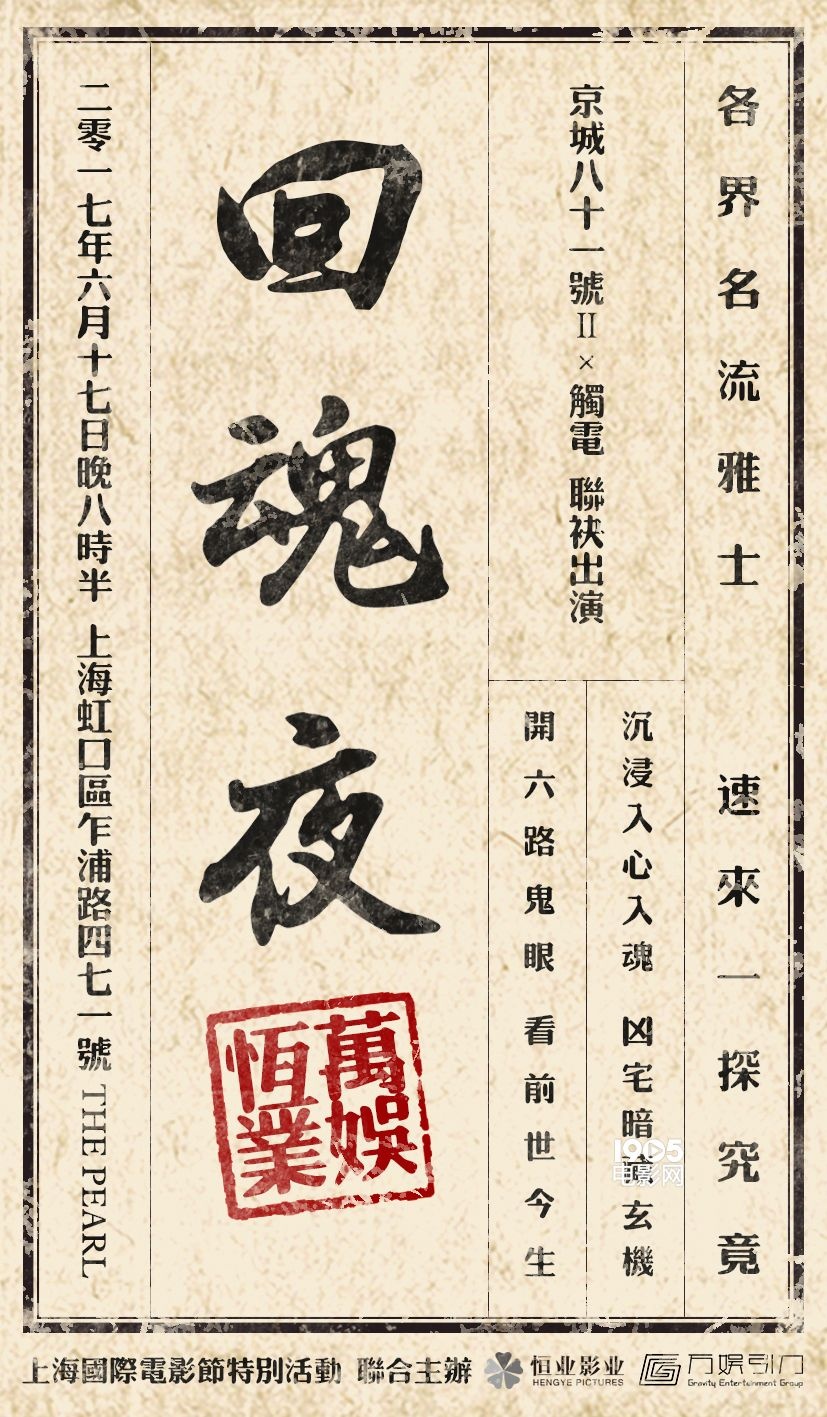 各界名流雅士 速來一探究竟
京城八十一號II×觸電 聯袂出演
沉浸入心入魂 凶宅暗藏玄機
開六路鬼眼 看前世今生
回魂夜
萬娛
恆業
二零一七年六月十七日晚八時半 上海虹口區乍浦路四七一號 THE PEARL
1905
电影网
上海國際電影節特別活動 聯合主辦
恒业影业
HENGYE PICTURES
万娱引力
Gravity Entertainment Group